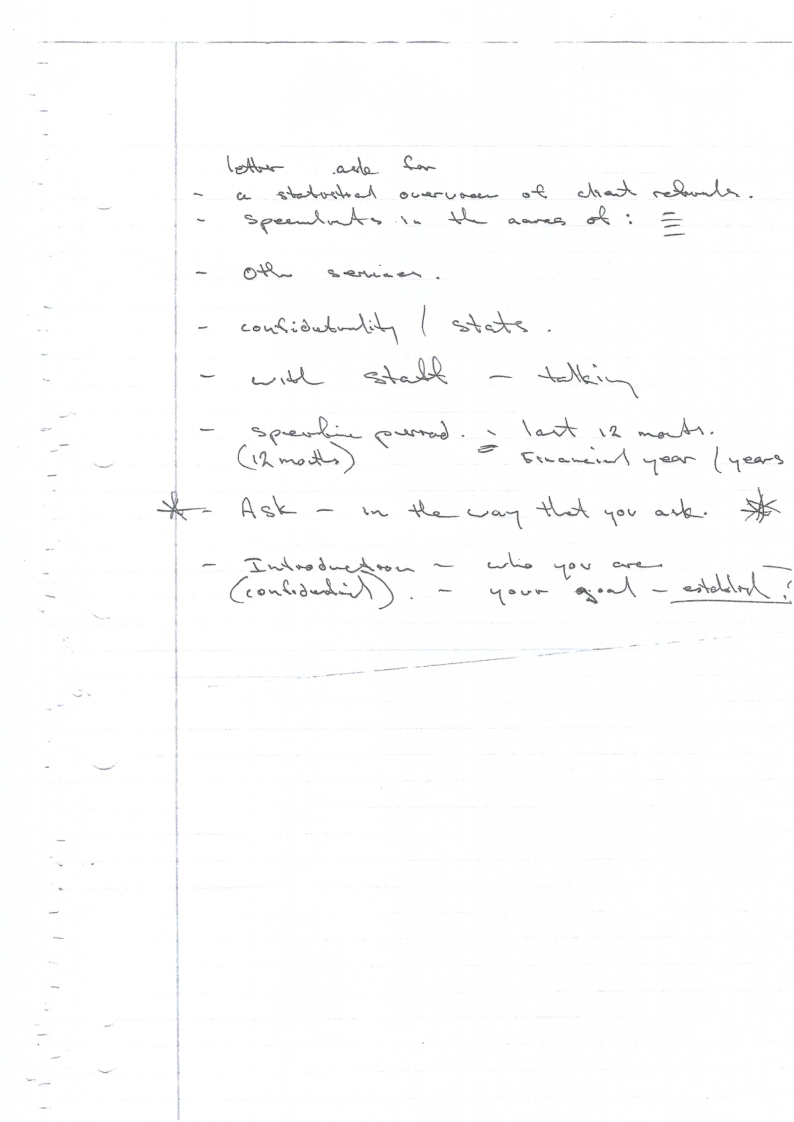 letter ask for
- a statistical overview of client referrals.
- specialists in the areas of :
- Other services.
- confidentiality / stats.
- with staff - talking
- specific period. - last 12 months.
(12 months) = Financial year / years
* - Ask - in the way that you ask. *
- Introduction - who you are
(confidential). - your goal - establish?